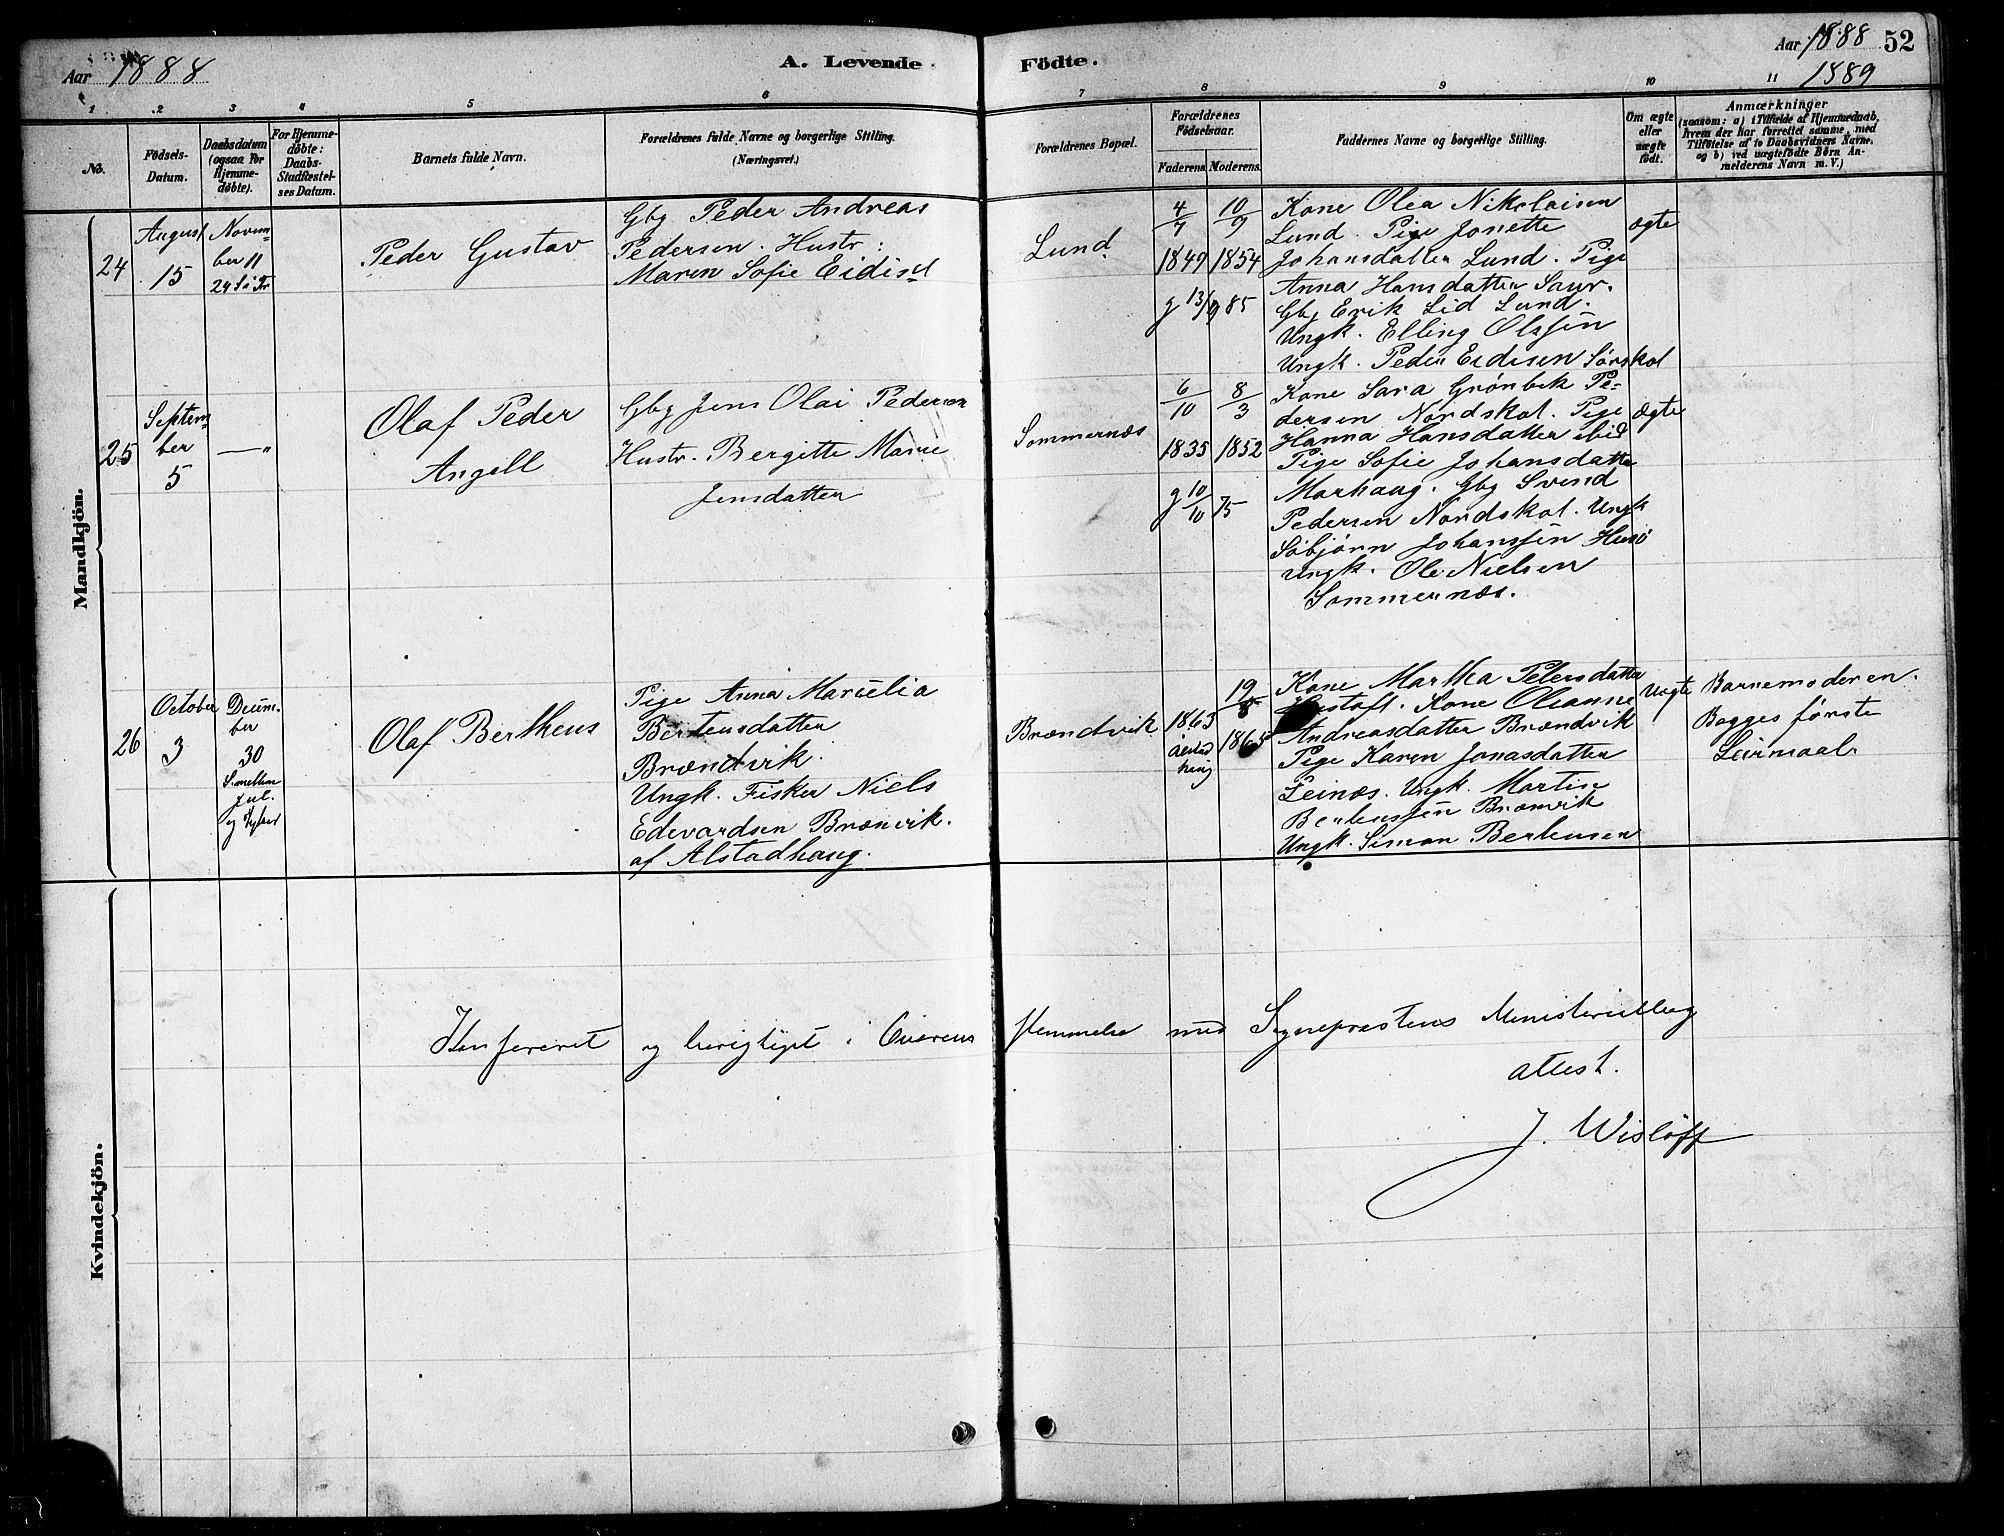 Aar 1888
A. Levende
Födte.
Aar 1888 52
1889
1 2 3 4 5 6 7 8 9 10 11
No.
Födsels-
Datum.
Daabsdatum
(ogsaa for
Hjemme-
döbte).
For Hjemme-
döbte:
Daabs-
Stadfæstel-
ses Datum.
Barnets fulde Navn.
Forældrenes fulde Navne og borgerlige Stilling.
(Næringsvei.)
Forældrenes Bopæl.
Forældrenes
Födselsaar.
Faderens. Moderens.
Faddernes Navne og borgerlige Stilling.
Om ægte
eller
uægte
födt.
Anmærkninger
(saasom: a) i Tilfælde af Hjemmedaab,
hvem der har forrettet samme, med
Tilföielse af to Daabsvidners Navne,
og b) ved uægtefödte Börn An-
melderens Navn m. V.)
Mandkjön.
24
August
15
Novem-
ber 11
24 S i Tr
Peder Gustav
Gbg Peder Andreas
Pedersen. Hustr:
Maren Sofie Eidisd
Lund.
4/7 10/9
1849 1854
g 13/9 85
Kone Olea Nikolaisen
Lund. Pige Jonette
Johansdatter Lund. Pige
Anna Hansdatter Saur.
Gbg Erik Lid Lund.
Ungk. Elling Olsen
Ungk. Peder Eidisen Sørskot
ægte
25
Septem-
ber
5
—"
Olaf Peder
Angell
Gbg Jens Olai Pedersen
Hustr. Bergitte Marie
Jensdatter
Sommernæs
6/10 8/3
1835 1852
g 10/10 75
Kone Sara Grønbek Pe-
dersen Nordskot. Pige
Hanna Hansdatter ibid
Pige Sofie Johansdatter
Marhaug. Gbg Svend
Pedersen Nordskot. Ungk
Søbjørn Johanssen Husø
Ungk. Ole Nielsen
Sommernæs.
Ægte
26
October
3
Decem-
ber
30
S. mellem
Jul.
og Nytaar
Olaf Bertheus
Pige Anna Marselia
Bertensdatter
Brændvik.
Ungk. Fisker Niels
Edvardsen Brænvik.
af Alstadhaug.
Brændvik
1863
Alstad
haug
19/8
1865
Kone Martha Petersdatter
Kone Oleanne
Andreasdatter Brændvik
Pige Karen Jonasdatter
Leinæs. Ungk. Martin
Bertenssen Brænvik
Ungk. Simon Bertensen
Uægte
Barnemoderen.
Begges første
Leiermaal.
Kvindekjön.
Konfereret og berigtiget i Overens stemmelse med Sogneprestens Ministerialbog
attest.
J. Wisløff